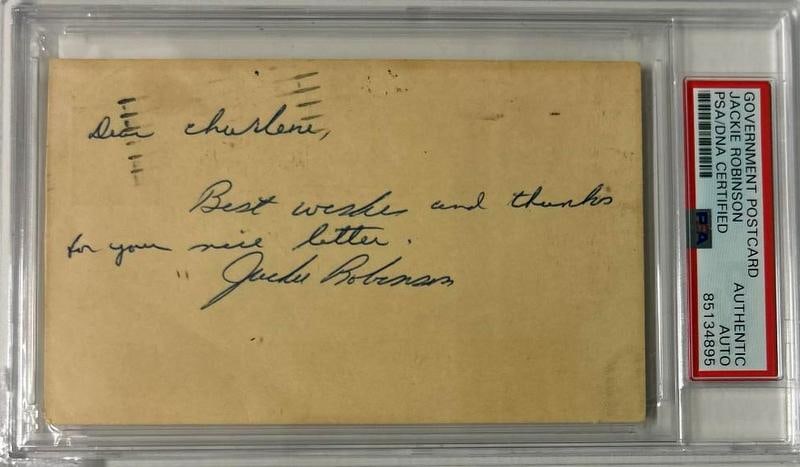 Dear Charlene,
Best wishes and thanks
for your nice letter.
Jackie Robinson
GOVERNMENT POSTCARD
JACKIE ROBINSON
PSA/DNA CERTIFIED
AUTHENTIC
AUTO
85134895
PSA